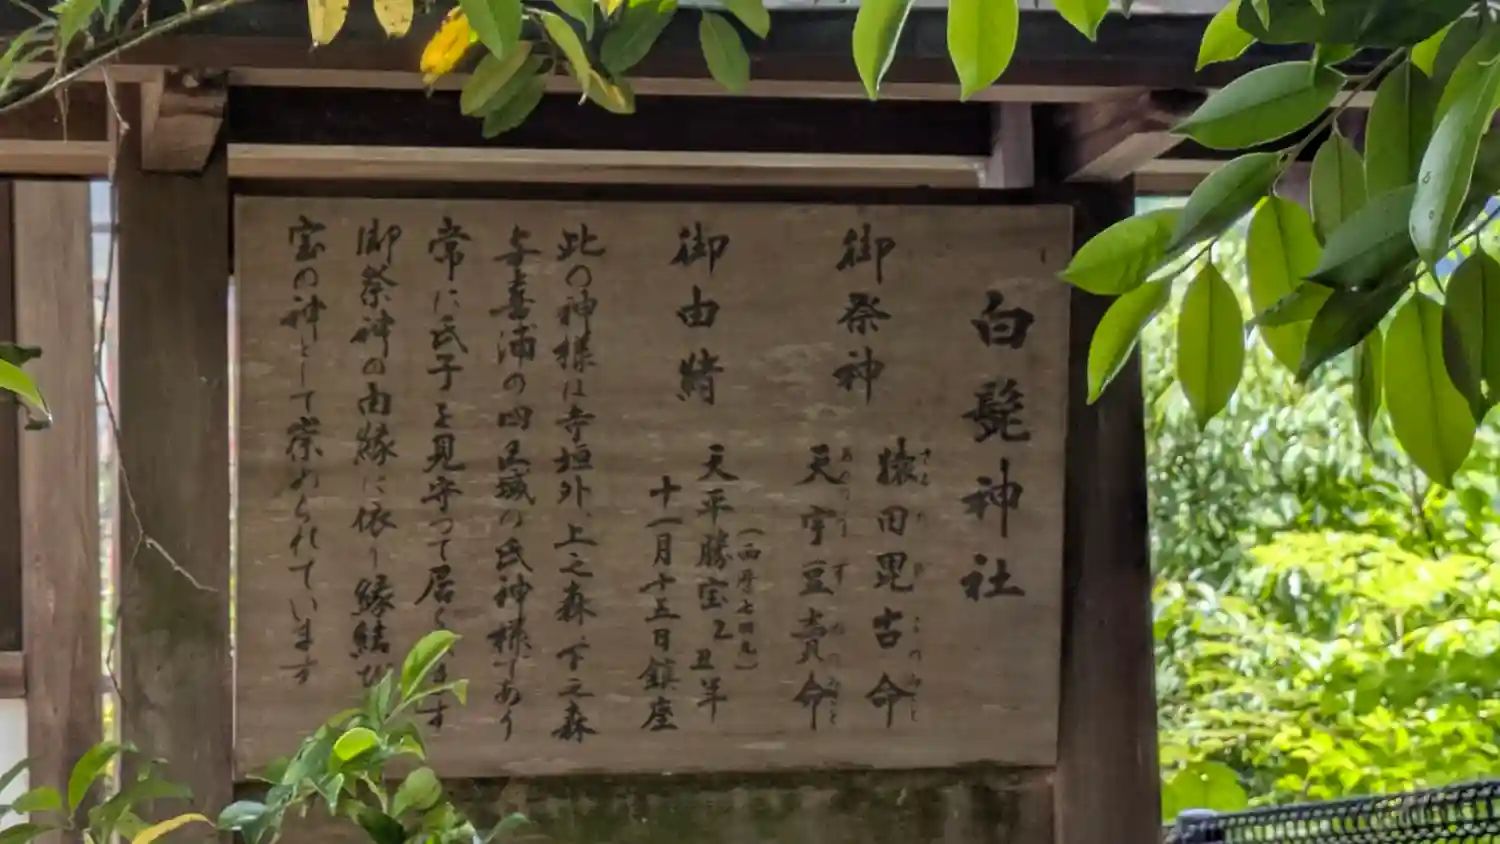 白髭神社
御祭神
猿田毘古命
さるたひこのみこと
天宇豆売命
あめのうずめのみこと
御由緒
(西暦七四九)
天平勝宝乙丑年
十一月十五日鎮座
此の神様は寺垣外、上之森、下之森
喜浦の四区域の氏神様であり
常に氏子を見守って居られます
御祭神の由縁に依り縁結び
宝の神として崇められています